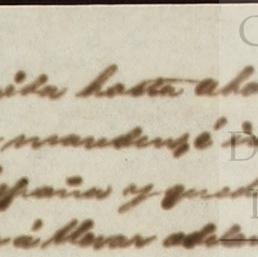 ida hasta aho
mandenz é in
España y qued
á llevar adela